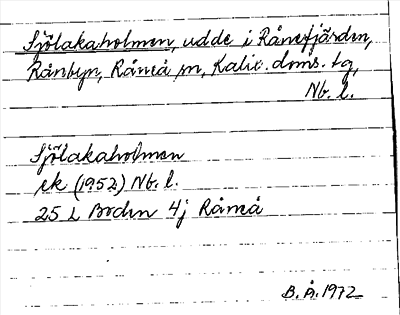 Sjölakaholmen, udde i Rånefjärden,
Rånbyn, Råneå sn, Kalix doms. tg,
Nb. l.
Sjölakaholmen
ek (1952) Nb. l.
25 L Boden 4j Råneå
B. Å. 1972